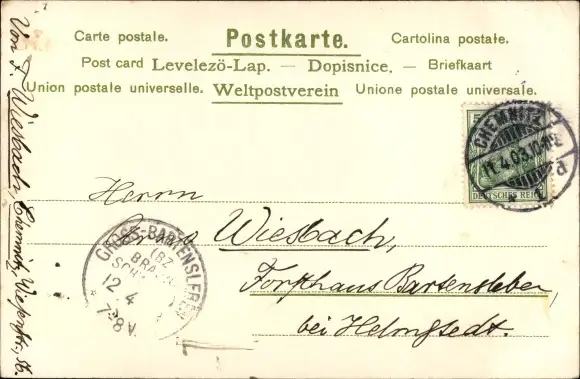 Carte postale. Postkarte. Cartolina postale.
Post card Levelezö-Lap. — Dopisnice. — Briefkaart
Union postale universelle. Weltpostverein Unione postale universale.
CHEMNITZ
11.4.03.10-11
d
DEUTSCHES REICH
Herrn
Wiesbach,
Forsthaus Bartensleben,
bei Helmstedt.
GROSS-BARTENSLEBEN
(BZ
12 4
7-8 V.
Von F. Wiesbach, Chemnitz,